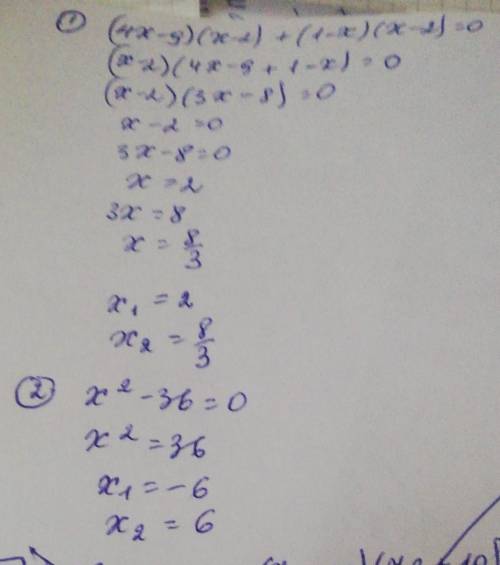 ① (4x-9)(x-2)+(1-x)(x-2)=0
(x-2)(4x-9+1-x)=0
(x-2)(3x-8)=0
x-2=0
3x-8=0
x=2
3x=8
x=8/3
x₁=2
x₂=8/3
② x²-36=0
x²=36
x₁=-6
x₂=6